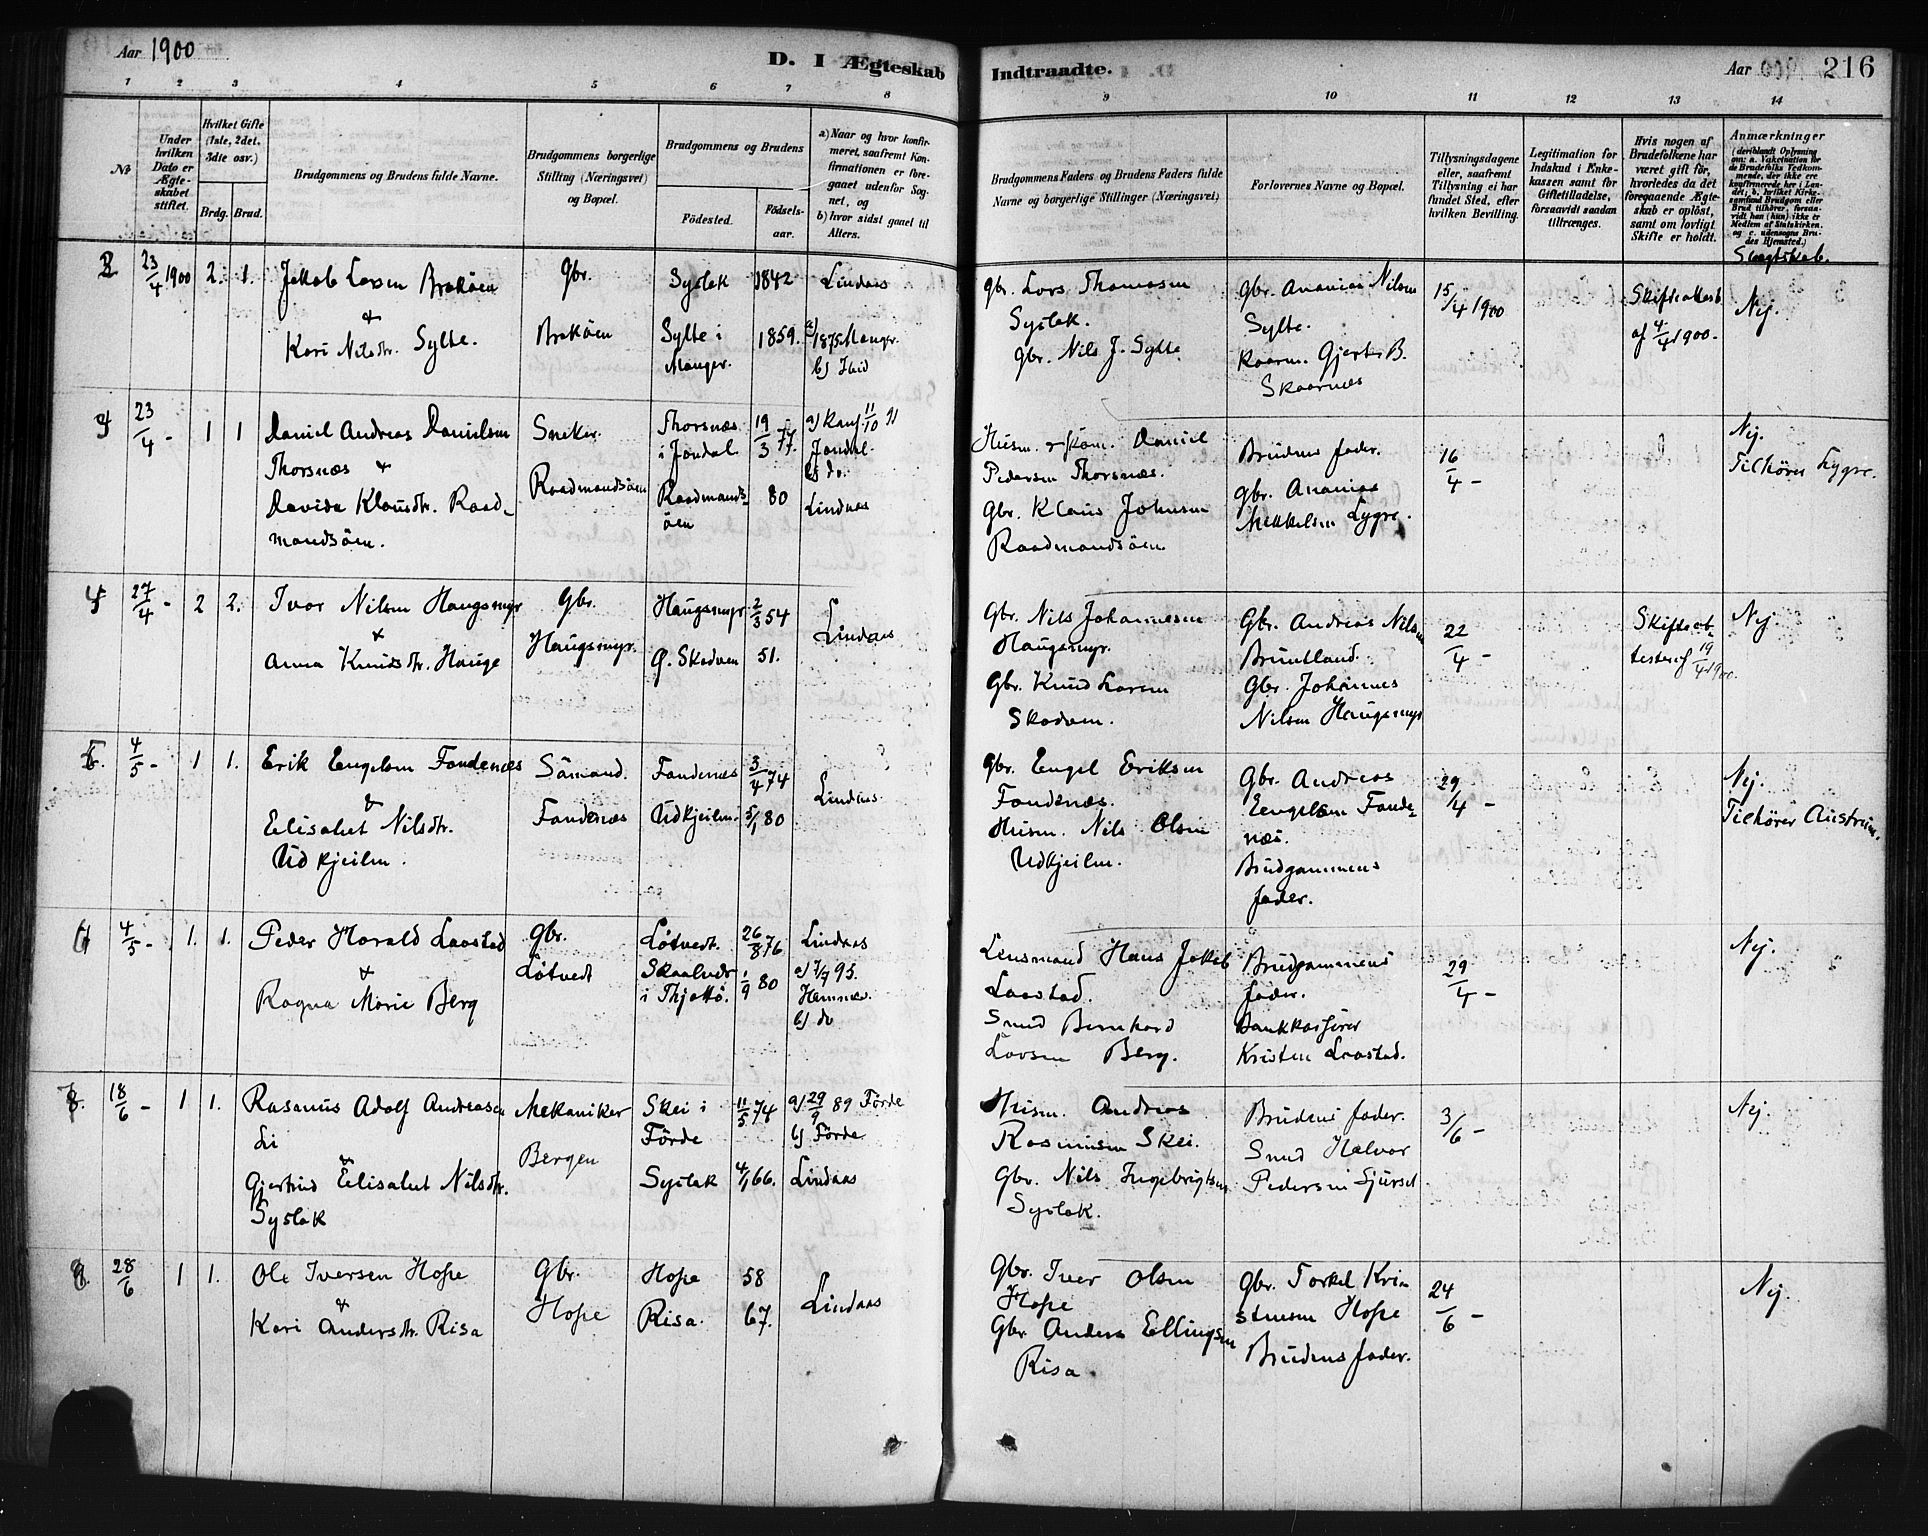 Aar 1900
D. I Ægteskab
Indtraadte.
Aar 1900
216
1 2 3 4 5 6 7 8 9 10 11 12 13 14
No
Under hvilken Dato er Ægteskabet stiftet.
Hvilket Gifte (1ste, 2det, 3die osv.)
Brdg. Brud.
Brudgommens og Brudens fulde Navne.
Brudgommens borgerlige Stilling (Næringsvei) og Bopæl.
Brudgommens og Brudens
Fødested.
Fødsels-aar.
a) Naar og hvor konfirmeret, saafremt Konfirmationen er foregaaet udenfor Sognet, og
b) hvor sidst gaaet til Alters.
Brudgommens Faders og Brudens Faders fulde Navne og borgerlige Stillinger (Næringsvei)
Forlovernes Navne og Bopæl.
Tillysningsdagene eller, saafremt Tillysning ei har fundet Sted, efter hvilken Bevilling.
Legitimation for Indskud i Enkekassen samt for Giftetilladelse, forsaavidt saadan tiltrænges.
Hvis nogen af Brudefolkene har været gift før, hvorledes da det foregaaende Ægteskab er opløst, samt om lovligt Skifte er holdt.
Anmærkninger
(deriblandt Oplysning om: a. Vakcination for de Brudefolks Vedkommende, der ikke ere konfirmerede her i Landet; b. hvilket Kirkesamfund Brudgom eller Brud tilhører, forsaavidt han (hun) ikke er Medlem af Statskirken. og c. udensogns Brudes Hjemsted.)
Slægtskab.
23/4 1900 2. 1. Jakob Larsen Brekøen
&
Kari Nilsdtr. Sylte.
Gbr.
Brekøen
Systak
Sylte i
Manger.
1842
1859.
Lindaas
a) 1875 Mangr.
b) Hvid
Gbr. Lars Thomasen
Systak.
Gbr. Nils J. Sylte.
Gbr. Ananias Nilsen
Sylte.
Kaarm. Gjert B.
Skaarnæs
15/4 1900
Skifteattest
af 4/4 1900.
Nej.
4 23/4 - 1 1 Daniel Andreas Danielsen
Thorsnæs &
Davida Klausdtr. Raad-
mandsøen.
Sneker.
Raadmandsøen
Thorsnæs
i Jondal.
Raadmands-
øen
19/3 77.
80
a) Konf 11/10 91
Jondal.
b) do.
Lindaas
Husm. Daniel
Pedersen Thorsnæs.
Gbr. Klaus Johnsen
Raadmandsøen.
Brudens fader.
Gbr. Ananias
Mikkelsen Lygre.
16/4 -
Nej.
Tilhører Lygre.
27/4 - 2 2. Ivar Nilsen Haugsmyr
&
Anna Knudsdtr. Hauge
Gbr.
Haugsmyr.
Haugsmyr
Ø. Skodven
2/3 54
51.
Lindaas
Gbr. Nils Johannesen
Haugsmyr.
Gbr. Knud Larsen
Skodven.
Gbr. Andreas Nilsen
Bruntland.
Gbr. Johannes
Nilsen Haugsmyr
22/4 -
Skifteat-
test af 19/4 1900.
Nej.
4/5 - 1 1. Erik Engelsen Fondenes
&
Elisabet Nilsdtr.
Udkjeilen.
Sømand.
Fondenæs
Fondenæs
Udkjeilen.
3/4 74
5/1 80
Lindaas
Gbr. Engel Eriksen
Fondenæs.
Husm. Nils Olsen
Udkjeilen.
Gbr. Andreas
Engelsen Fonde-
næs.
Brudgommens
fader.
29/4 -
Nej.
Tilhører Austrim.
4/5 - 1. 1. Peder Harald Laastad
&
Ragna Marie Berg
Gbr.
Løtvedt
Løtvedt.
Skaalvedt
i Thjøttø.
26/8 76
1/9 80
Lindaas
a) 7/7 95.
Hemnes.
b) do
Lensmand Hans Jakob
Laastad.
Smed Bernhard
Larsen Berg.
Brudgommens
fader.
Bankkasserer
Kristen Laastad.
29/4 -
Nej.
18/6 - 1 1. Rasmus Adolf Andreasen
Li
&
Gjertrud Elisabet Nilsdtr.
Systak
Mekaniker
Bergen
Skei i
Førde
Systak
11/5 74
4/1 66.
a) 29/9 89 Førde
b) Førde
Lindaas
Husm. Andreas
Rasmusen Skei.
Gbr. Nils Ingebrigtsen
Systak.
Brudens fader.
Smed Halvor
Pedersen Sjurset
3/6 -
Nej.
28/6 1 1. Ole Iversen Hope
&
Kari Andersdtr. Risa
Gbr.
Hope
Hope
Risa.
58
67.
Lindaas
Gbr. Iver Olsen
Hope
Gbr. Anders Ellingsen
Risa
Gbr. Torkel Kri-
stensen Hope
Brudens fader.
24/6 -
Nej.